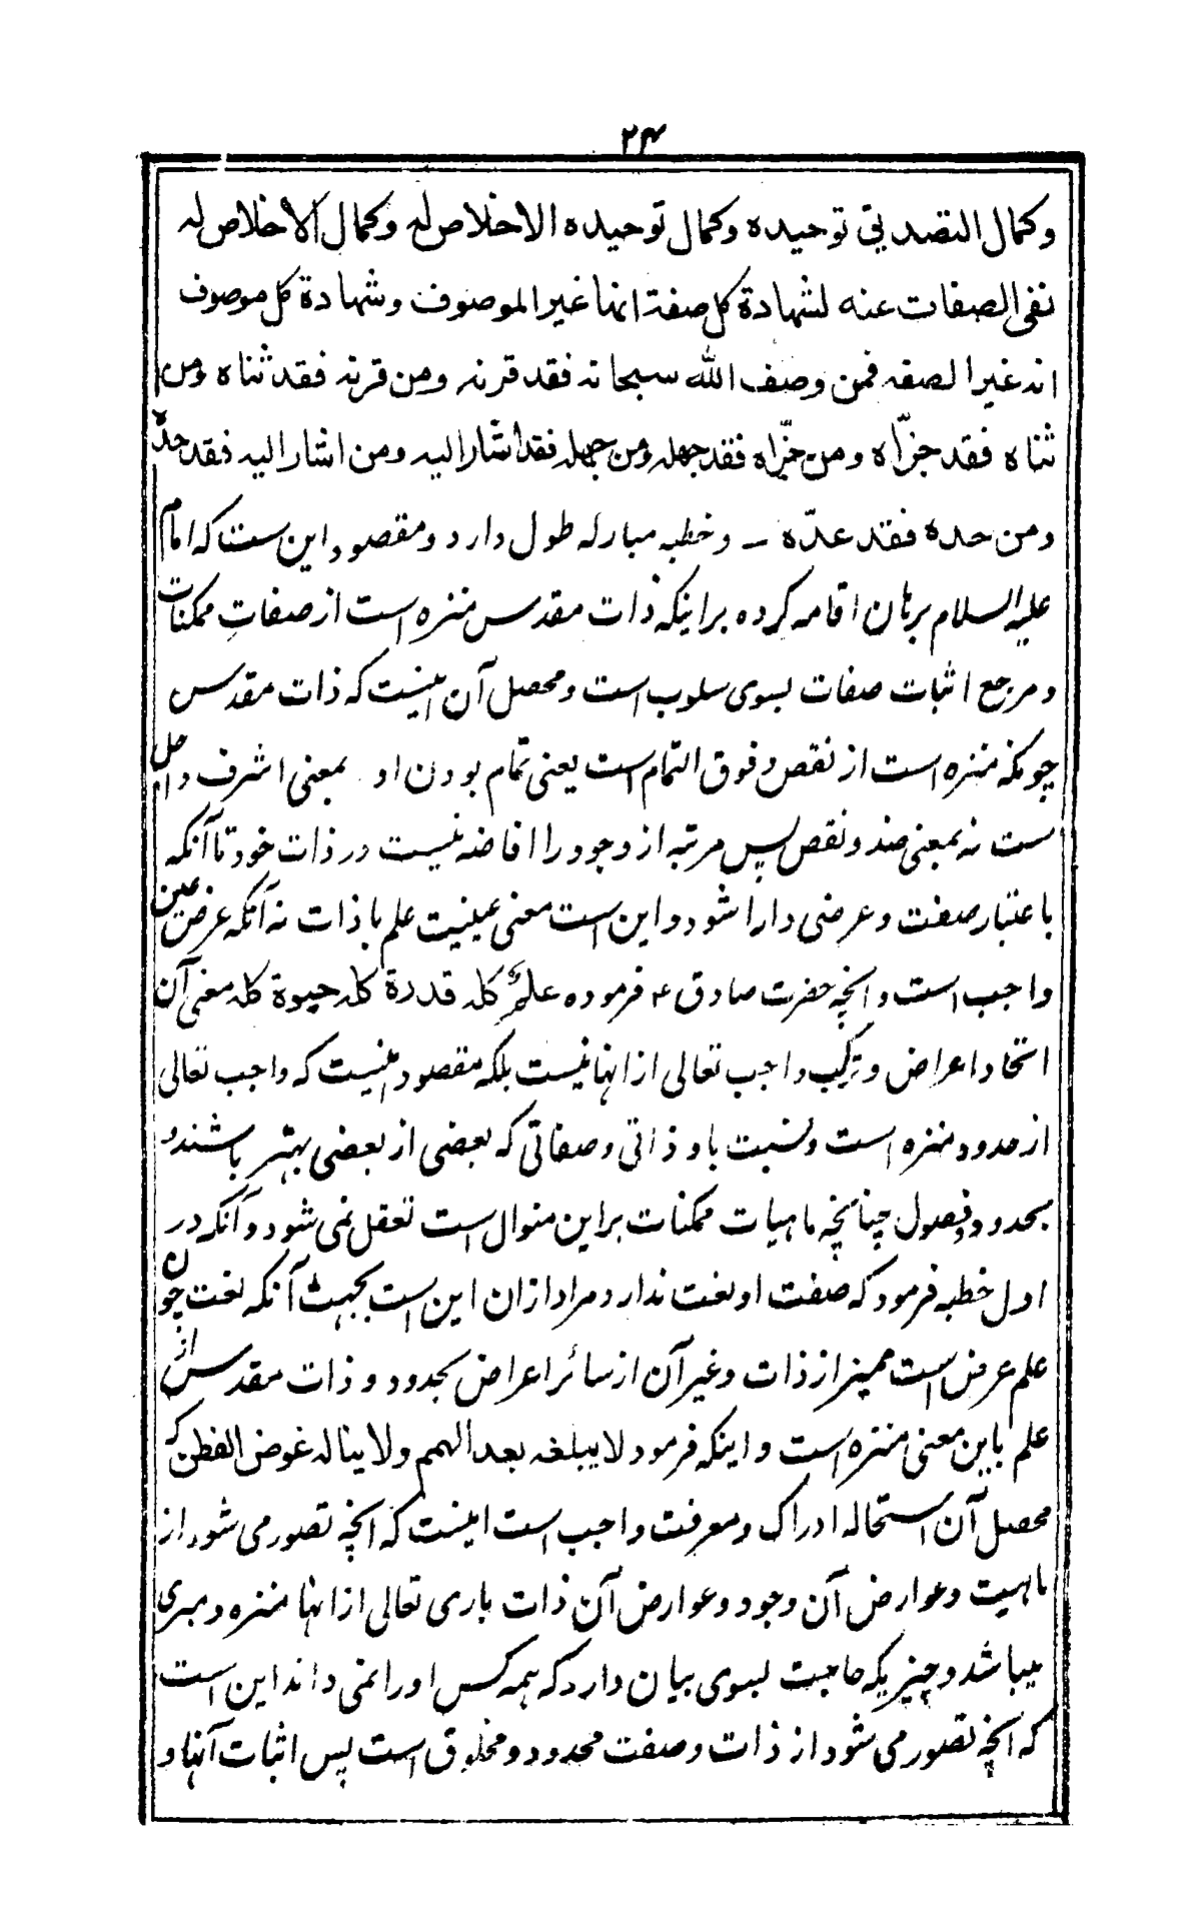 ۲۴
وکمال التصدیق توحیده وکمال توحیده الاخلاص له وکمال الاخلاص له
نفی الصفات عنه لشهادة کل صفة انها غیر الموصوف وشهادة کل موصوف
انه غیر الصفه فمن وصف الله سبحانه فقد قرنه ومن قرنه فقد ثناه ومن
ثناه فقد جزّاه ومن جزّاه فقد جهله ومن جهله فقد اشار الیه ومن اشار الیه فقد حدّه
ومن حده فقد عدّه ــ وخطبه مبارکه طول دارد ومقصود این ست که امام
علیه السلام برهان اقامه کرده براینکه ذات مقدس منزه است از صفاتِ ممکنات
ومرجع اثبات صفات بسوی سلوب است ومحصل آن اینست که ذات مقدس
چونکه منزه است از نقص وفوق التمام است یعنی تمام بودن او بمعنی اشرف و اصل
ست نه بمعنی ضد ونقص پس مرتبه از وجود را افاضه نیست در ذات خود تا آنکه
باعتبار صفت وعرضی دارا شود واین است معنی عینیت علم با ذات نه آنکه عرض عین
واجب است وانچه حضرت صادق ع فرموده علمٌ کله قدرة کله حیوة کله معنی آن
اتحاد اعراض وترکب واجب تعالی از انها نیست بلکه مقصود اینست که واجب تعالی
از حدود منزه است ونسبت باو ذاتی وصفاتی که بعضی از بعضی بهتر باشند و
بحدود وفصول چنانچه ماهیات ممکنات براین منوال است تعقل نمی شود وآنکه در
اول خطبه فرمود که صفت او نعت ندارد مراد ازان این است بجهت آنکه نعت چون
علم عرض است ممیز از ذات وغیر آن از سائر اعراض بحدود و ذات مقدس از
علم باین معنی منزه است واینکه فرمود لا یبلغه بعد الهمم ولا یناله غوض الفطن که
محصل آن استحاله ادراک ومعرفت واجب است اینست که انچه تصور می شود از
ماهیت وعوارض آن وجود وعوارض آن ذات باری تعالی از انها منزه ومبری
میباشد وچیزیکه حاجت بسوی بیان دارد که همه کس اورا نمی داند این است
که انچه تصور می شود از ذات وصفت محدود ومخلوق است پس اثبات آنها و